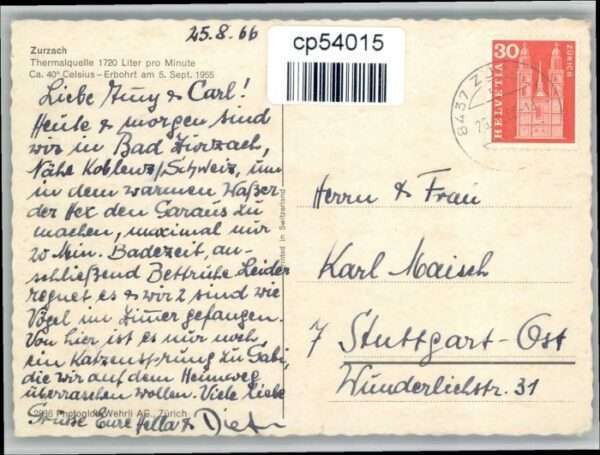 25.8.66
cp54015
Zurzach
Thermalquelle 1720 Liter pro Minute
Ca. 40° Celsius – Erbohrt am 5. Sept. 1955
Liebe & Carl!
Heute & morgen sind
wir in Bad Zurzach,
Nähe Koblenz/Schweiz, um
in dem warmen Waßer
der Hex den Garaus zu
machen, maximal nur
20 Min. Badezeit, an-
schließend Bettruhe Leider
regnet es & wir 2 sind wie
Vögel im Zimer gefangen.
Von hier ist es nur noch,
ein Katzensprung zu Gabi,
die wir auf dem Heimweg
überraschen wollen. Viele liebe
Grüße Eure Hella & Dieter
2936 Photoglob-Wehrli AG., Zürich
Printed in Switzerland
30
HELVETIA
ZÜRICH
8437
Herrn & Frau
Karl Maisch
7 Stuttgart-Ost
Wunderlichstr. 31